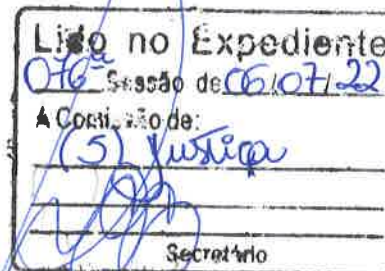 Lido no Expediente
076ª Sessão de 06/07/22
A Comissão de:
(5) Justiça
Secretário